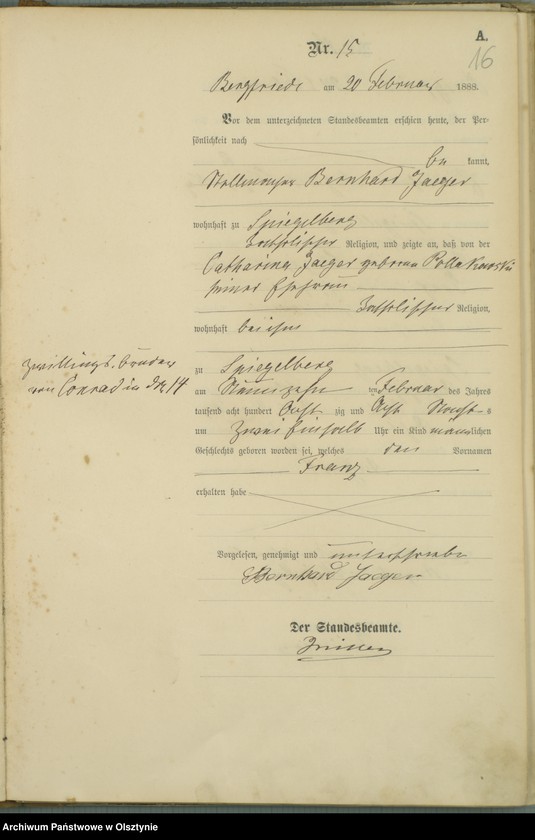 A.
16
Nr. 15
Bergfriede am 20 Februar 1888.
Vor dem unterzeichneten Standesbeamten erschien heute, der Per-
sönlichkeit nach
be kannt,
Stellmacher Bernhard Jaeger
wohnhaft zu Spiegelberg
katholischer Religion, und zeigte an, daß von der
Catharina Jaeger geborene
seiner Ehefrau
katholischer Religion,
wohnhaft bei ihm
Zwillingsbruder
von Conrad in Nr 14
zu Spiegelberg
am Neunzehn ten Februar des Jahres
tausend acht hundert Acht zig und Acht Nacht s
um Zwei einhalb Uhr ein Kind männlichen
Geschlechts geboren worden sei, welches den Vornamen
Franz
erhalten habe
Vorgelesen, genehmigt und unterschrieben
Bernhard Jaeger
Der Standesbeamte.
Archiwum Państwowe w Olsztynie